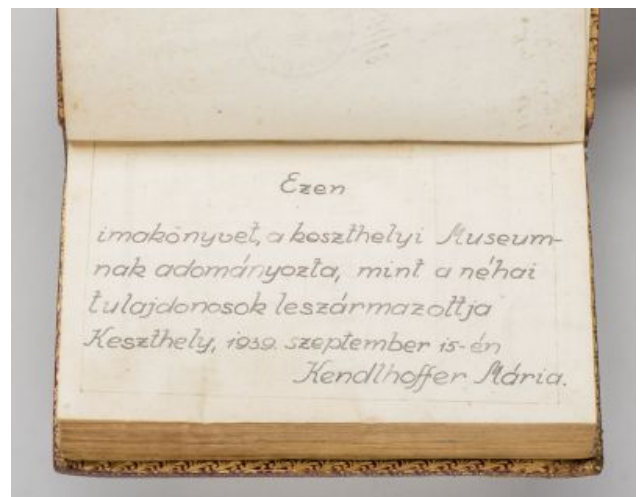 Ezen
imakönyvet, a keszthelyi Museum-
nak adományozta, mint a néhai
tulajdonosok leszármazottja
Keszthely, 1939. szeptember 15-én
Kendlhoffer Mária.